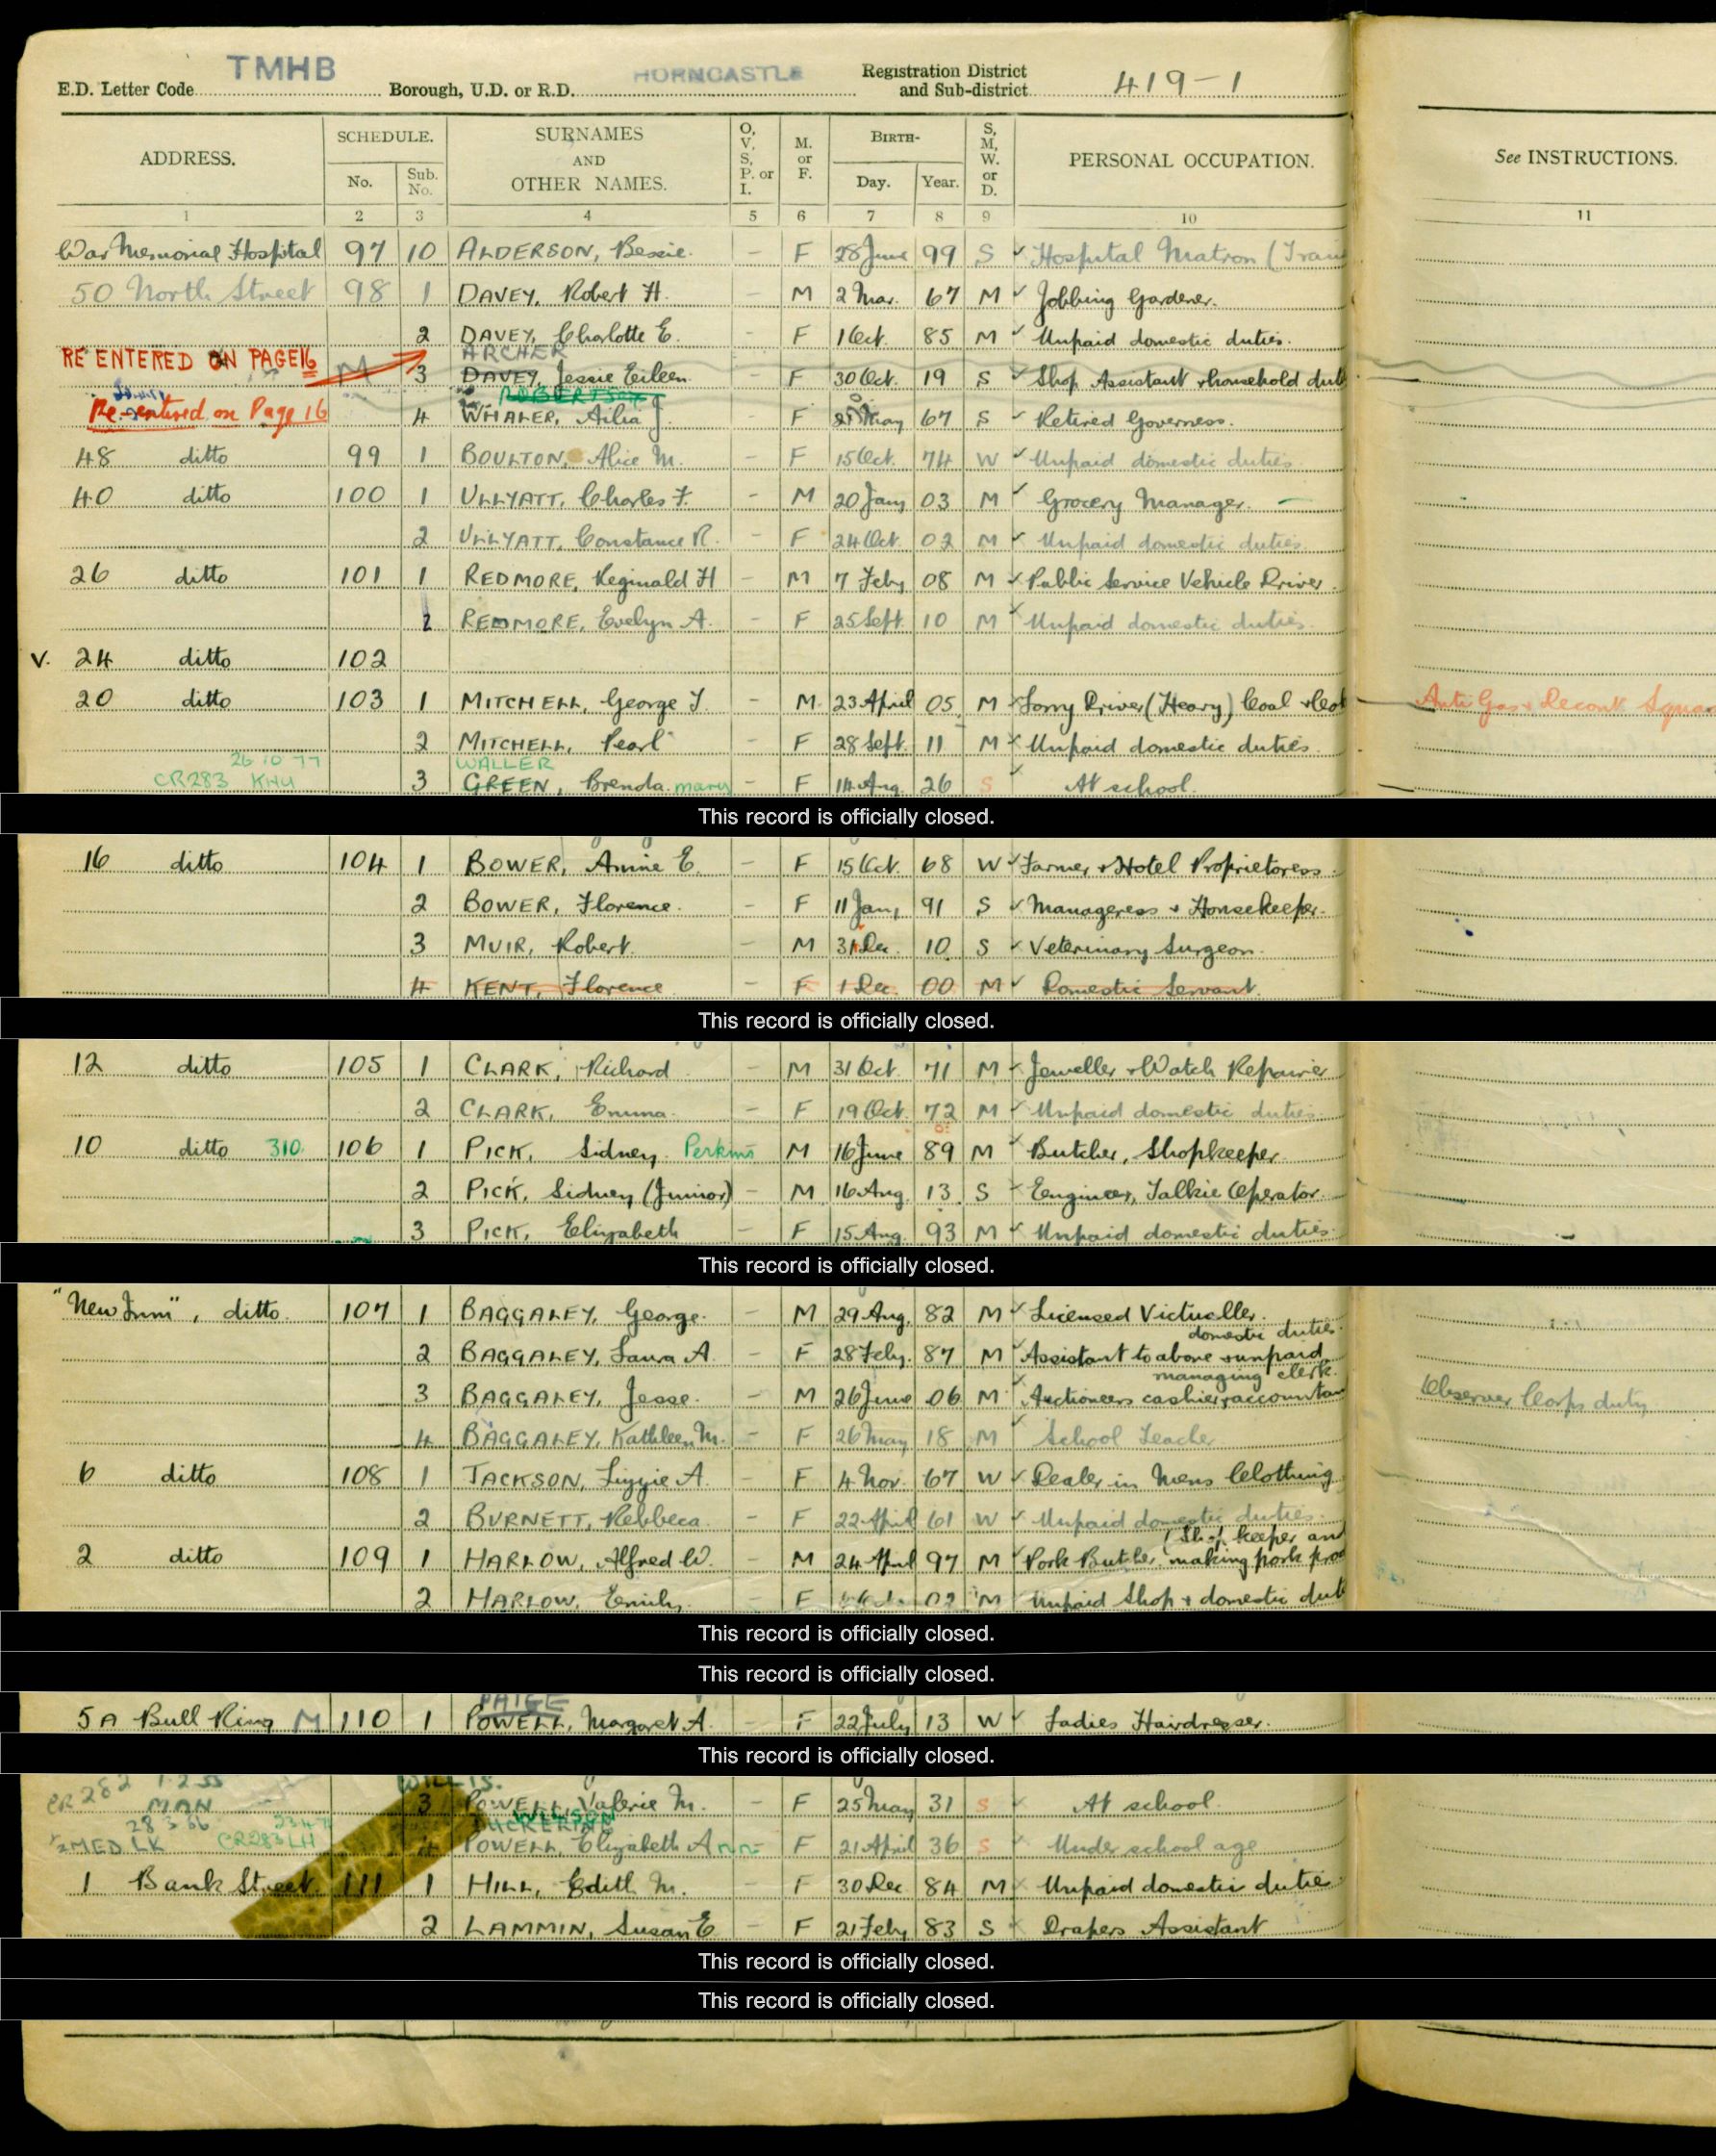 TMHB HORNCASTLE Registration District
E.D. Letter Code Borough, U.D. or R.D. and Sub-district 419-1
ADDRESS. SCHEDULE. SURNAMES AND OTHER NAMES. O, V, S, P. or I. M. or F. BIRTH- S, M, W. or D. PERSONAL OCCUPATION. See INSTRUCTIONS.
No. Sub. No. Day. Year.
1 2 3 4 5 6 7 8 9 10 11
War Memorial Hospital 97 10 ALDERSON, Bessie. - F 28 June 99 S ✓ Hospital Matron (Train
50 North Street 98 1 DAVEY, Robert H. - M 2 Mar. 67 M ✓ Jobbing Gardener.
2 DAVEY, Charlotte E. - F 1 Oct. 85 M ✓ Unpaid domestic duties.
RE ENTERED ON PAGE 16 ARCHER
M 3 DAVEY, Jessie Eileen - F 30 Oct. 19 S ✓ Shop Assistant & household dut
ROBERTSON
Re-entered on Page 16 4 WHALER, Ailia J. F May 67 S ✓ Retired Governess.
48 ditto 99 1 BOULTON, Alice M. - F 15 Oct. 74 W ✓ Unpaid domestic duties.
40 ditto 100 1 ULLYATT, Charles F. - M 20 Jany 03 M ✓ Grocery Manager.
2 ULLYATT, Constance R. - F 24 Oct. 02 M ✓ Unpaid domestic duties.
26 ditto 101 1 REDMORE, Reginald H - M 7 Feby 08 M ✓ Public Service Vehicle Driver.
2 REDMORE, Evelyn A. - F 25 Sept. 10 M ✓ Unpaid domestic duties.
V. 24 ditto 102
20 ditto 103 1 MITCHELL, George T. - M 23 April 05 M ✓ Lorry Driver (Heavy) Coal & Anti Gas & Decont Squa
2 MITCHELL, Pearl - F 28 Sept. 11 M ✓ Unpaid domestic duties.
26 10 77 WALLER
CR283 KHU 3 GREEN, Brenda. mary F 14 Aug. 26 S ✓ At school.
This record is officially closed.
16 ditto 104 1 BOWER, Annie E. - F 15 Oct. 68 W ✓ Farmer & Hotel Proprietoress.
2 BOWER, Florence. - F 11 Jany 91 S ✓ Manageress & Housekeeper.
3 MUIR, Robert. - M 31 Dec. 10 S ✓ Veterinary Surgeon.
4 KENT, Florence - F 1 Dec. 00 M ✓ Domestic Servant.
This record is officially closed.
12 ditto 105 1 CLARK, Richard - M 31 Oct. 71 M ✓ Jeweller & Watch Repairer
2 CLARK, Emma. - F 19 Oct. 72 M ✓ Unpaid domestic duties.
10 ditto 310. 106 1 PICK, Sidney. Perkins M 16 June 89 M ✓ Butcher, Shopkeeper.
2 PICK, Sidney (Junior) - M 16 Aug. 13 S ✓ Engineer, Talkie Operator.
3 PICK, Elizabeth - F 15 Aug. 93 M ✓ Unpaid domestic duties.
This record is officially closed.
"New Inn", ditto. 107 1 BAGGALEY, George. - M 29 Aug. 82 M ✓ Licensed Victualler.
domestic duties.
2 BAGGALEY, Laura A. - F 28 Feby. 87 M ✓ Assistant to above & unpaid
managing clerk.
3 BAGGALEY, Jesse. - M 26 June 06 M ✓ Auctioneers cashier, accountan Observer Corps duty
4 BAGGALEY, Kathleen M. - F 26 May 18 M School Teacher
6 ditto 108 1 JACKSON, Lizzie A. - F 4 Nov. 67 W ✓ Dealer in Mens Clothing
2 BURNETT, Rebbeca. - F 22 April 61 W ✓ Unpaid domestic duties.
(Shop keeper and
2 ditto 109 1 HARLOW, Alfred W. - M 24 April 97 M ✓ Pork Butcher making pork prod
2 HARLOW, Emily. F M Unpaid Shop & domestic dut
This record is officially closed.
This record is officially closed.
PAIGE
5A Bull Ring M 110 1 POWELL, Margaret A. - F 22 July 13 W ✓ Ladies Hairdresser.
This record is officially closed.
CR 282 1.2.55 WILLIS.
MAN 3 POWELL, Valerie M. - F 25 May 31 S ✓ At school.
28 3 66 WILSON
PUCKERING
MED LK CR283 LH 4 POWELL, Elizabeth Ann - F 21 April 36 S ✓ Under school age
1 Bank Street 111 1 HILL, Edith M. - F 30 Dec 84 M Unpaid domestic duties.
2 LAMMIN, Susan E - F 21 Feby 83 S Drapers Assistant
This record is officially closed.
This record is officially closed.